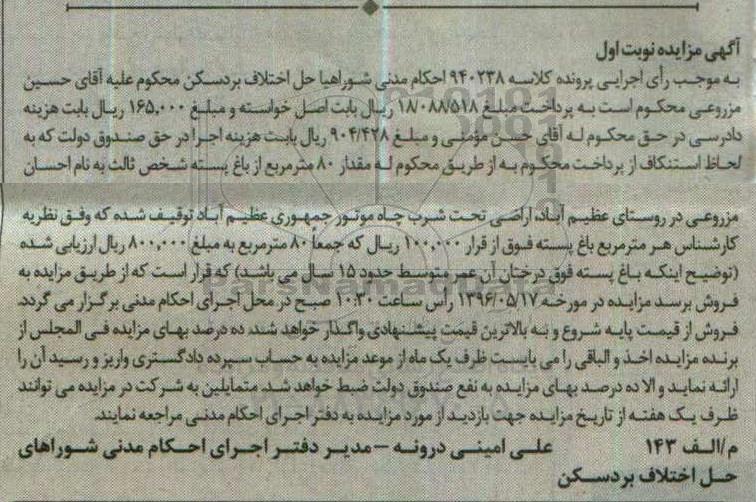 آگهی مزایده نوبت اول
به موجب رأی اجرایی پرونده کلاسه ۹۴۰۲۳۸ احکام مدنی شوراهیا حل اختلاف بردسکن محکوم علیه آقای حسین
مزروعی محکوم است به پرداخت مبلغ ۱۸/۰۸۸/۵۱۸ ریال بابت اصل خواسته و مبلغ ۱۶۵,۰۰۰ ریال بابت هزینه
دادرسی در حق محکوم له آقای حسن مؤمنی و مبلغ ۹۰۴/۴۲۸ ریال بابت هزینه اجرا در حق صندوق دولت که به
لحاظ استنکاف از پرداخت محکوم به از طریق محکوم له مقدار ۸۰ مترمربع از باغ پسته شخص ثالث به نام احسان
مزروعی در روستای عظیم آباد، اراضی تحت شرب چاه موتور جمهوری عظیم آباد توقیف شده که وفق نظریه
کارشناس هر مترمربع باغ پسته فوق از قرار ۱۰۰,۰۰۰ ریال که جمعاً ۸۰ مترمربع به مبلغ ۸۰۰,۰۰۰ ریال ارزیابی شده
(توضیح اینکه باغ پسته فوق درختان آن عمر متوسط حدود ۱۵ سال می باشد) که قرار است که از طریق مزایده به
فروش برسد مزایده در مورخه ۱۳۹۶/۰۵/۱۷ رأس ساعت ۱۰:۳۰ صبح در محل اجرای احکام مدنی برگزار می گردد.
فروش از قیمت پایه شروع و به بالاترین قیمت پیشنهادی واگذار خواهد شد، ده درصد بهای مزایده فی المجلس از
برنده مزایده اخذ و الباقی را می بایست ظرف یک ماه از موعد مزایده به حساب سپرده دادگستری واریز و رسید آن را
ارائه نماید و الا ده درصد بهای مزایده به نفع صندوق دولت ضبط خواهد شد. متمایلین به شرکت در مزایده می توانند
ظرف یک هفته از تاریخ مزایده جهت بازدید از مورد مزایده به دفتر اجرای احکام مدنی مراجعه نمایند.
م/الف ۱۴۳ علی امینی درونه – مدیر دفتر اجرای احکام مدنی شوراهای
حل اختلاف بردسکن
ParsNamadData